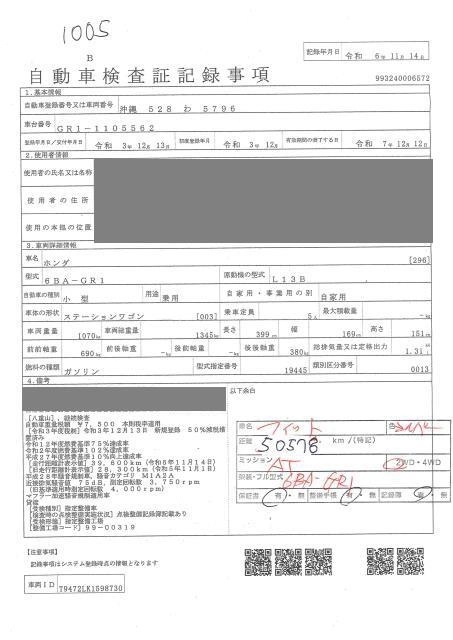 1005
B
自動車検査証記録事項
記録年月日 令和 6年 11月 14日
993240006572
1.基本情報
自動車登録番号又は車両番号 沖縄 528 わ 5796
車台番号 GR1-1105562
登録年月日/交付年月日 令和 3年 12月 13日 初度登録年月 令和 3年 12月 有効期間の満了する日 令和 7年 12月 12日
2.使用者情報
使用者の氏名又は名称
使用者の住所
使用の本拠の位置
3.車両詳細情報
車名 ホンダ [296]
型式 6BA-GR1 原動機の型式 L13B
自動車の種別 小型 用途 乗用 自家用・事業用の別 自家用
車体の形状 ステーションワゴン [003] 乗車定員 5人 最大積載量 -kg
車両重量 1070kg 車両総重量 1345kg 長さ 399cm 幅 169cm 高さ 151cm
前前軸重 690kg 前後軸重 -kg 後前軸重 -kg 後後軸重 380kg 総排気量又は定格出力 1.31
燃料の種類 ガソリン 型式指定番号 19445 類別区分番号 0013
4.備考
以下余白
[八重山], 継続検査
自動車重量税額 ¥7,500 本則税率適用
[令和3年度税制] 令和3年12月13日 新規登録 50%減税措置済み
令和12年度燃費基準75%達成車
令和2年度燃費基準102%達成車
平成27年度燃費基準10%向上達成車
[走行距離計表示値] 39,600km (令和6年11月14日)
[旧走行距離計表示値] 28,300km (令和5年11月1日)
平成28年騒音規制車, 騒音カテゴリ M1A2A
近接排気騒音値 75dB, 測定回転数 3,750rpm
(旧基準適用時測定回転数 4,000rpm)
マフラー加速騒音規制適用車
貸渡
[受検種別] 指定整備車
[検査時の点検整備実施状況] 点検整備記録簿記載あり
[受検形態] 指定整備工場
[整備工場コード] 99-00319
車名 フィット 色
距離 50578 km/(特記)
ミッション AT 2WD・4WD
別紙・フル型式 6BA-GR1
保証書 有・無 整備手帳 有・無 記録簿 有・無
【注意事項】
記録事項はシステム登録時点の情報となります
車両ID T9472LK1598730